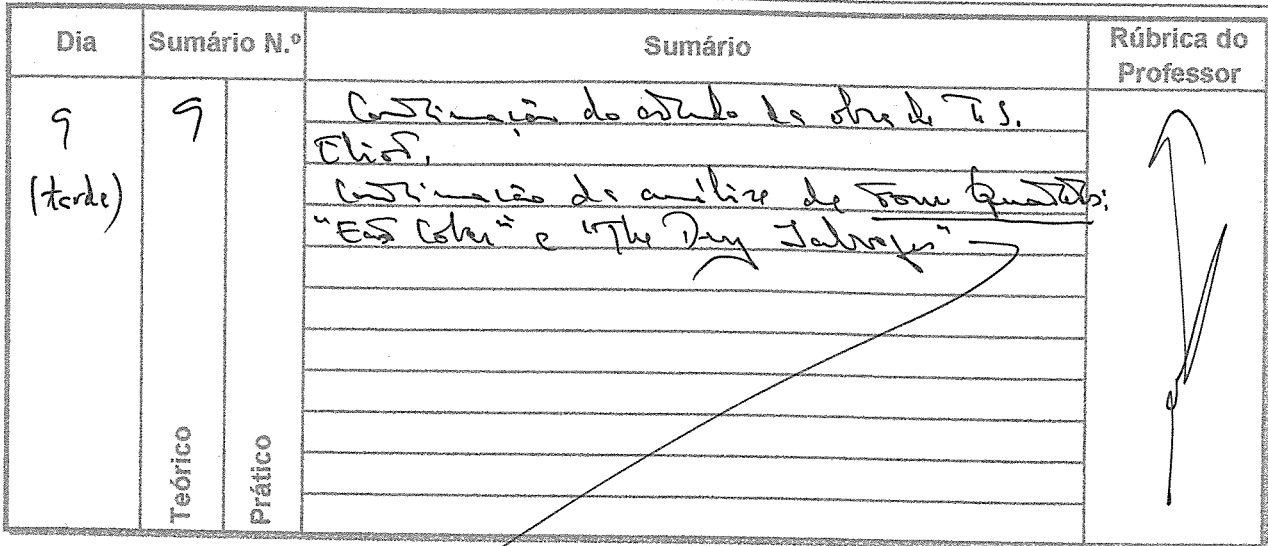 Dia
Sumário N.º
Sumário
Rúbrica do
Professor
9
(tarde)
9
Teórico
Prático
Continuação do estudo da obra de T.S.
Eliot.
Continuação da análise de Four Quartets:
"East Coker" e "The Dry Salvages"